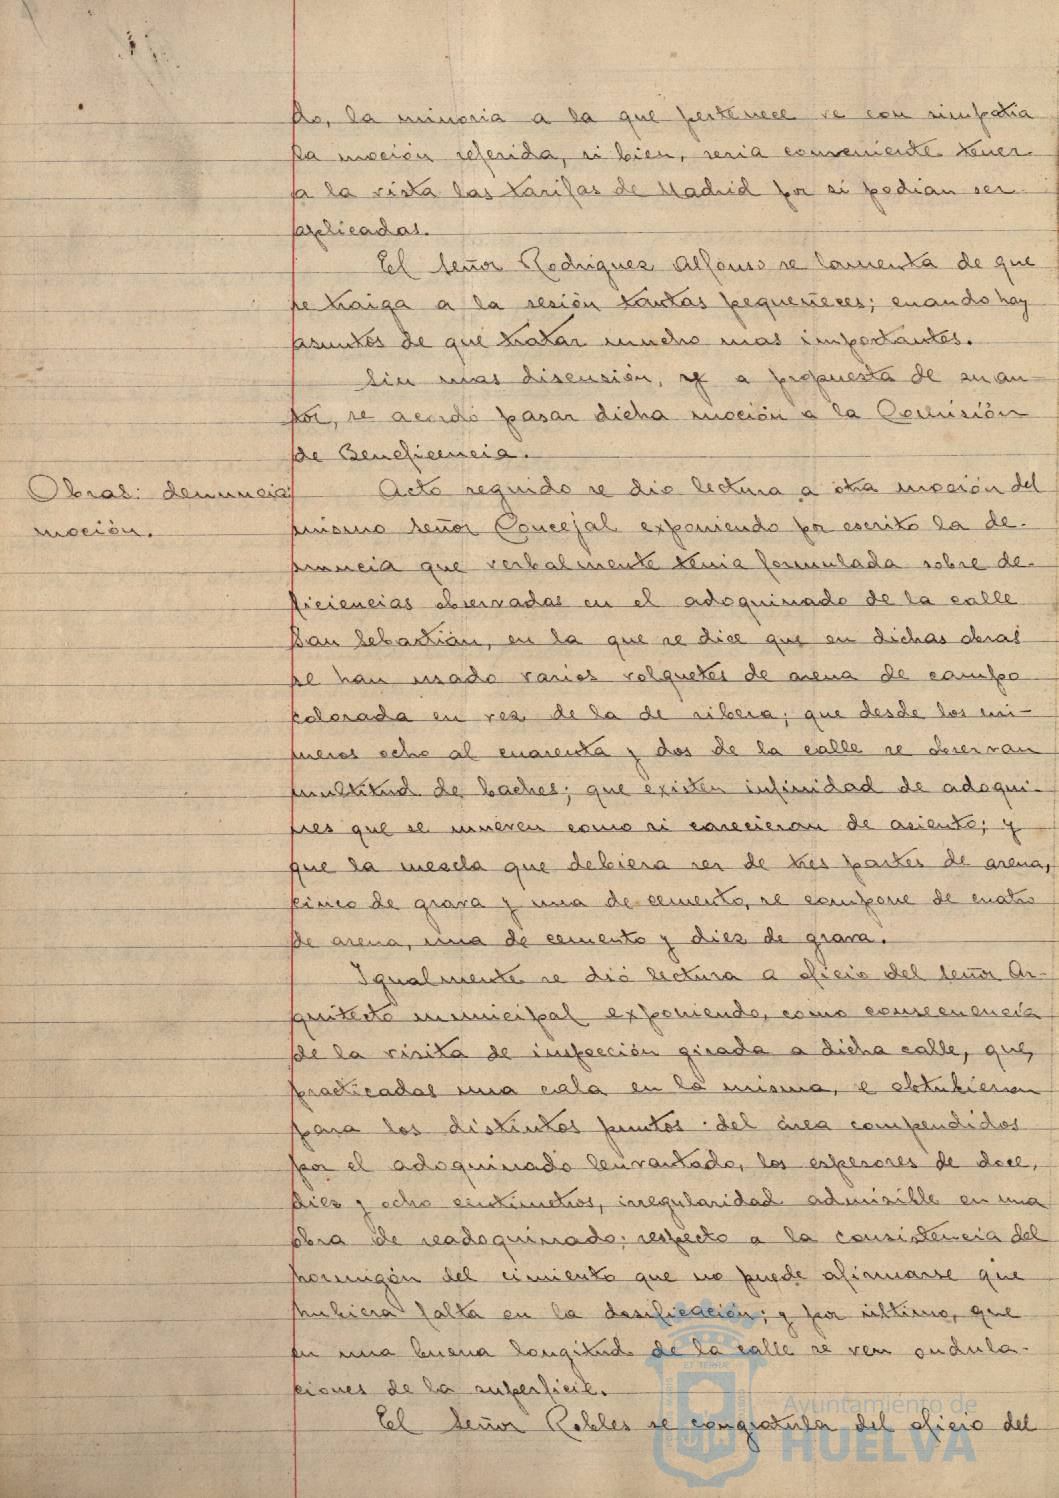 do, la minoria a la que pertenece ve con simpatia
la moción referida, si bien, seria conveniente tener
a la vista las tarifas de Madrid por si podian ser
aplicadas.
El Señor Rodriguez Alfonso se lamenta de que
se traiga a la sesión tantas pequeñeces; cuando hay
asuntos de que tratar mucho mas importantes.
Sin mas discusión, y a propuesta de su au-
tor, se acordó pasar dicha moción a la Comisión
de Beneficencia.
Obras: denuncia:
moción.
Acto seguido se dio lectura a otra moción del
mismo Señor Concejal exponiendo por escrito la de-
nuncia que verbalmente tenia formulada sobre de-
ficiencias observadas en el adoquinado de la calle
San Sebastián, en la que se dice que en dichas obras
se han usado varios volquetes de arena de campo
colorada en vez de la de ribera; que desde los nú-
meros ocho al cuarenta y dos de la calle se observan
multitud de baches; que existen infinidad de adoqui-
nes que se mueven como si carecieran de asiento; y
que la mezcla que debiera ser de tres partes de arena,
cinco de grava y una de cemento, se compone de cuatro
de arena, una de cemento y diez de grava.
Igualmente se dió lectura a oficio del Señor Ar-
quitecto municipal exponiendo, como consecuencia
de la visita de inspección girada a dicha calle, que,
practicadas una cala en la misma, se obtubieron
para los distintos puntos del área compendidos
por el adoquinado lenvantado, los espesores de doce,
diez y ocho centimetros, irregularidad admisible en una
obra de readoquinado; respecto a la consistencia del
hormigón del cimiento que no puede afirmarse que
hubiera falta en la dosificación; y por último, que
en una buena longitud de la calle se ven ondula-
ciones de la superficie.
El Señor Robles se congratula del oficio del
Ayuntamiento de
HUELVA